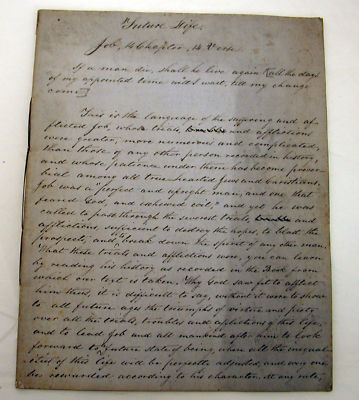 "Future Life.
Job, 14 Chapter, 14 Verse.
If a man die, shall he live again? [all the days
of my appointed time will I wait, till my change
come.]
This is the language of the suffering and af-
flicted Job, whose trials, troubles and afflictions
were greater, more numerous and complicated,
than those of any other person recorded in history,
and whose patience under them has become prover-
bial among all true hearted Jews and Christians.
Job was a "perfect and upright man, and one that
feared God, and eschewed evil," and yet he was
called to pass through the severest trials, troubles and
afflictions sufficient to destroy the hopes, to blast the
prospects, and to break down the spirit of any other man.
What these trials and afflictions were, you can learn
by reading his history as recorded in the Book from
which our text is taken. Why God saw fit to afflict
him thus, it is difficult to say, without it were to show
to all future ages the triumphs of virtue and piety
over all the trials, troubles and afflictions of this life,
and to lead Job and all mankind after him to look
forward to a future state of being, when all the inequal-
ities of this life will be perfectly adjusted, and every one
be rewarded according to his character. At any rate,